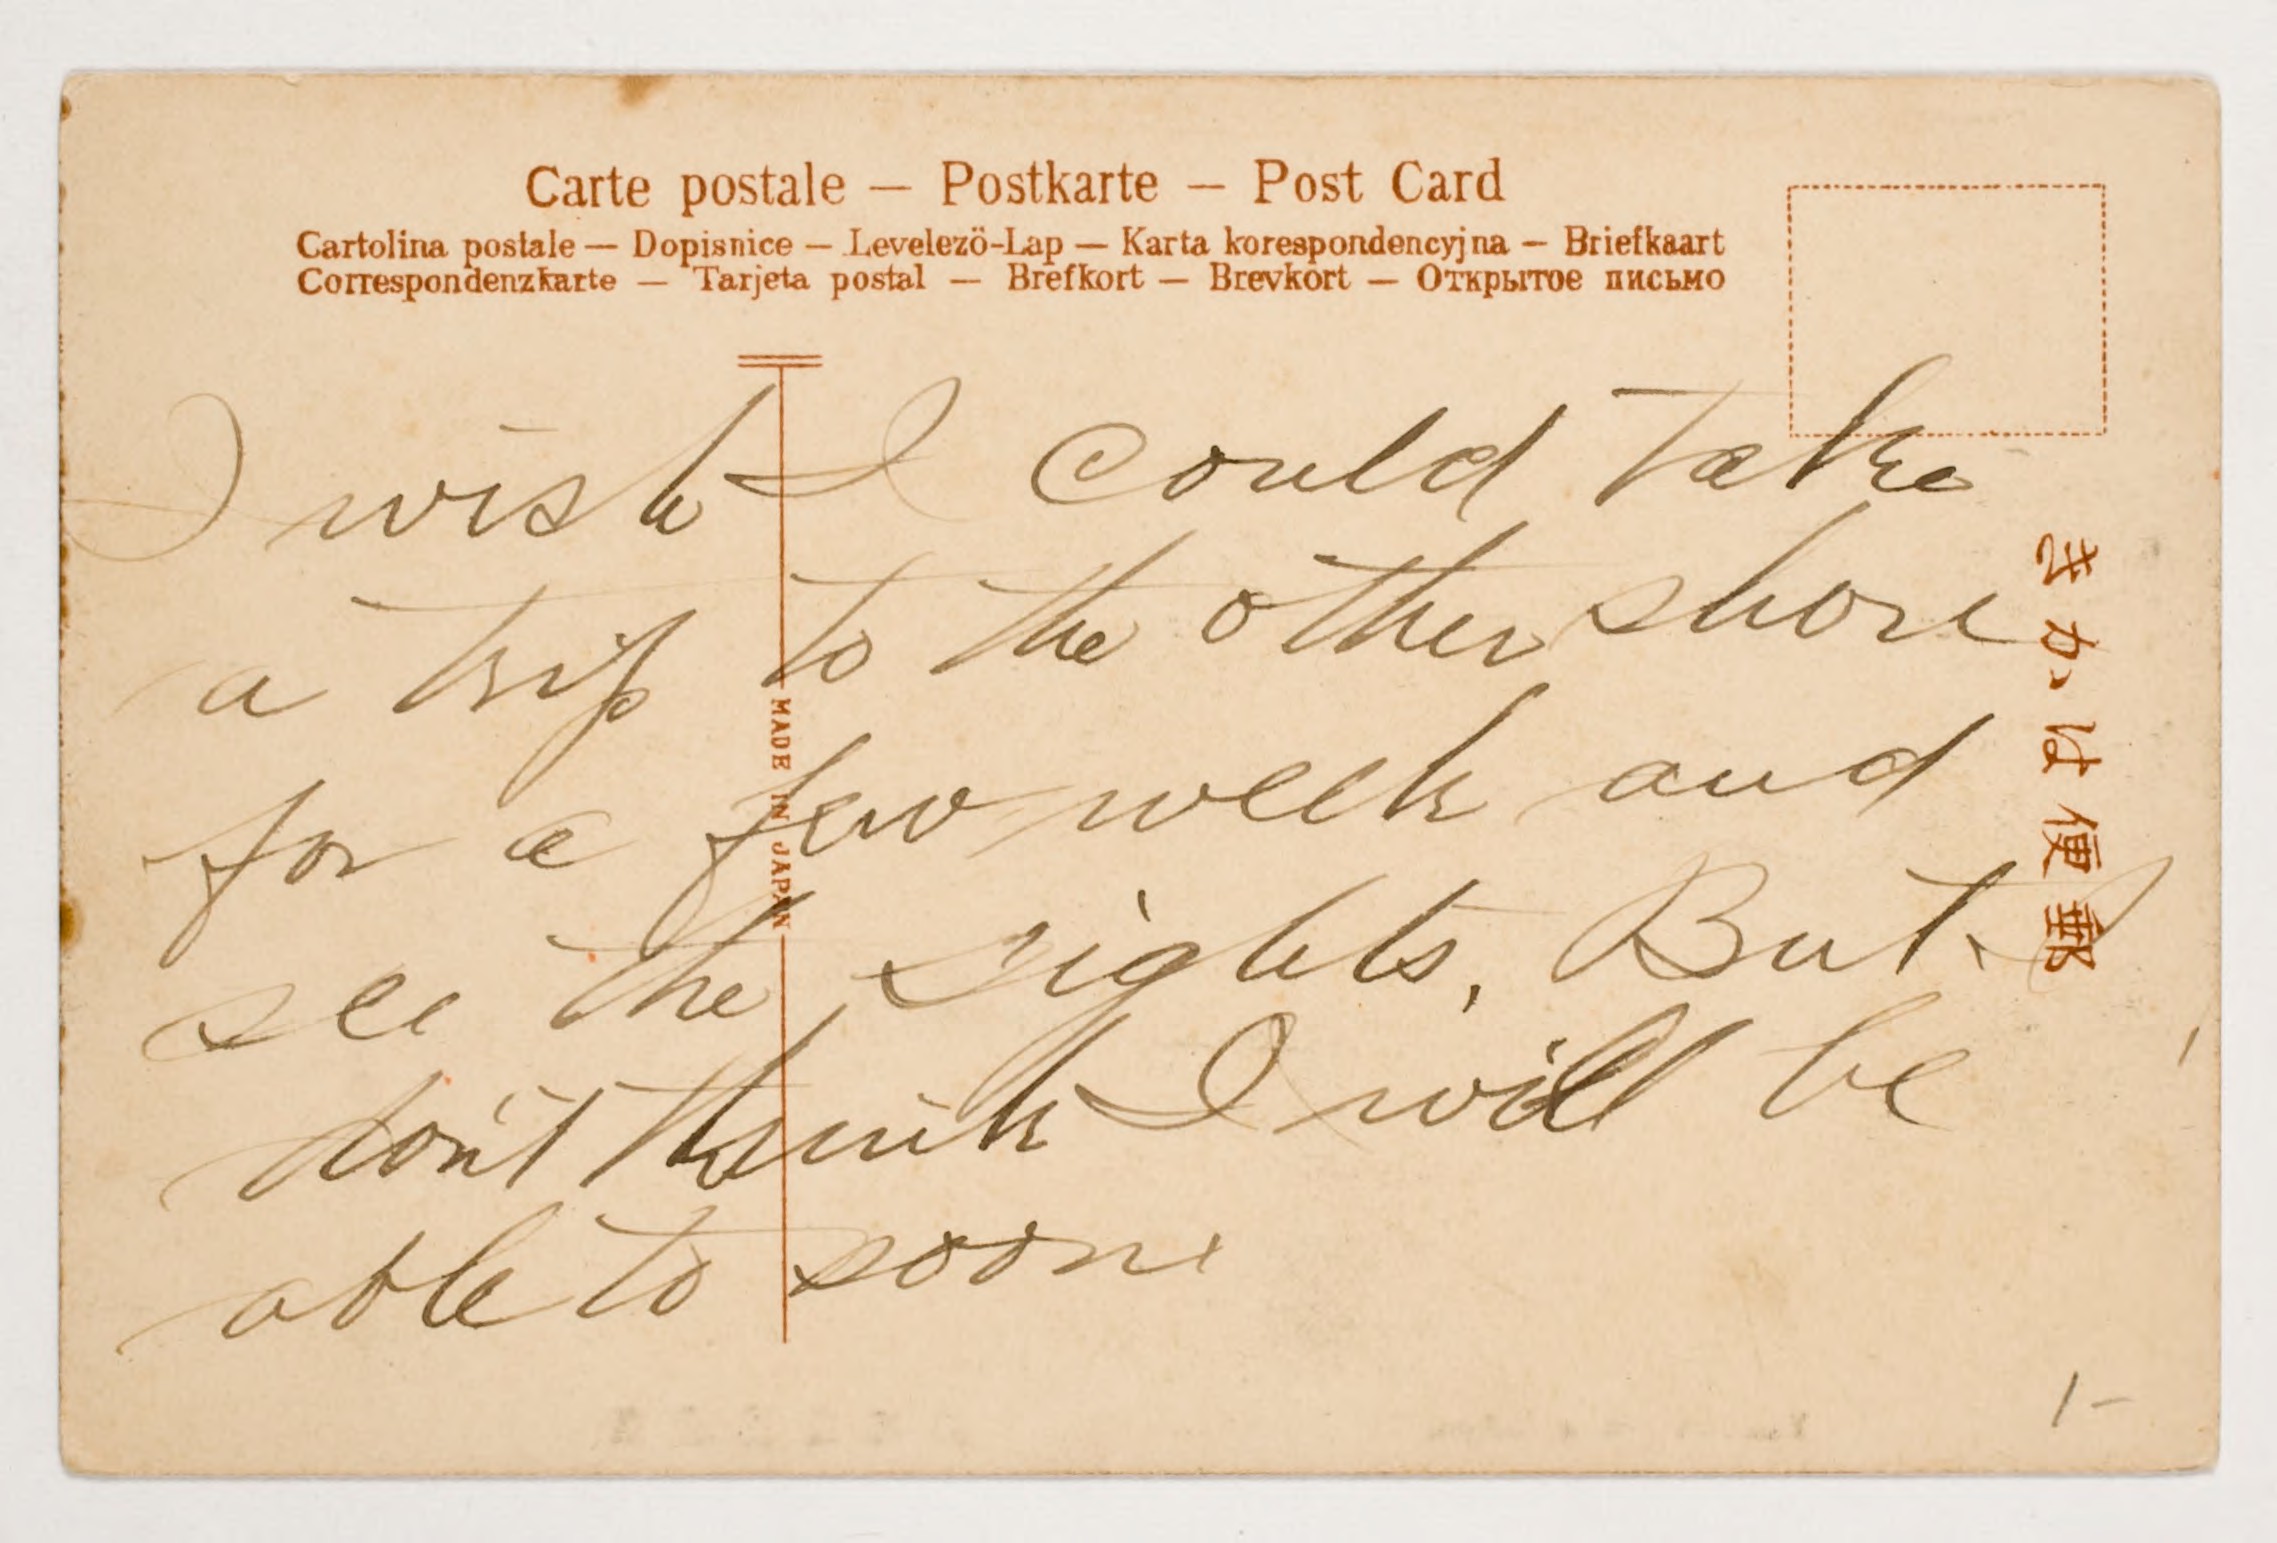 Carte postale — Postkarte — Post Card
Cartolina postale — Dopisnice — Levelezö-Lap — Karta korespondencyjna — Briefkaart
Correspondenzkarte — Tarjeta postal — Brefkort — Brevkort — Открытое письмо
I wish I could take
a trip to the other shore
for a few week and
see the sights, But I
don't think I will be
able to soon
MADE IN JAPAN
きかは便郵
1-